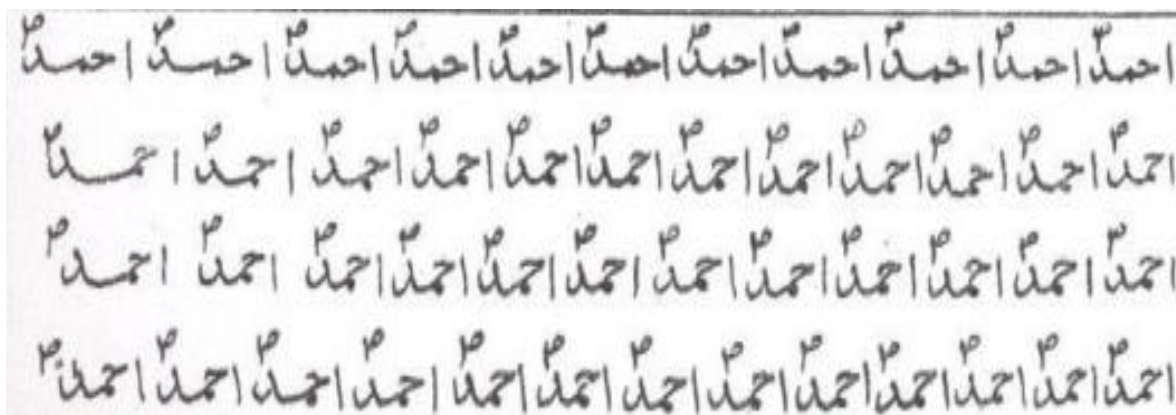 احمدؐ احمدؐ احمدؐ احمدؐ احمدؐ احمدؐ احمدؐ احمدؐ احمدؐ احمدؐ احمدؐ
احمدؐ احمدؐ احمدؐ احمدؐ احمدؐ احمدؐ احمدؐ احمدؐ احمدؐ احمدؐ احمدؐ احمدؐ
احمدؐ احمدؐ احمدؐ احمدؐ احمدؐ احمدؐ احمدؐ احمدؐ احمدؐ احمدؐ احمدؐ احمدؐ
احمدؐ احمدؐ احمدؐ احمدؐ احمدؐ احمدؐ احمدؐ احمدؐ احمدؐ احمدؐ احمدؐ احمدؐ احمدؐ